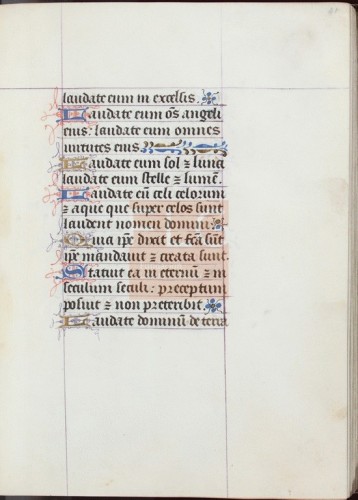 laudate eum in excelsis.
Laudate eum om̄s angeli
eius: laudate eum omnes
uirtutes eius.
Laudate eum sol ⁊ luna
laudate eum stelle ⁊ lumē.
Laudate eū celi celorum
⁊ aque que super celos sunt
laudent nomen domini.
Quia ip̄e dixit et fc̄a sūt
ip̄e mandauit ⁊ creata sunt.
Statuit ea in eternū ⁊ in
seculum seculi: preceptum
posuit ⁊ non preteribit.
Laudate dominū de terra